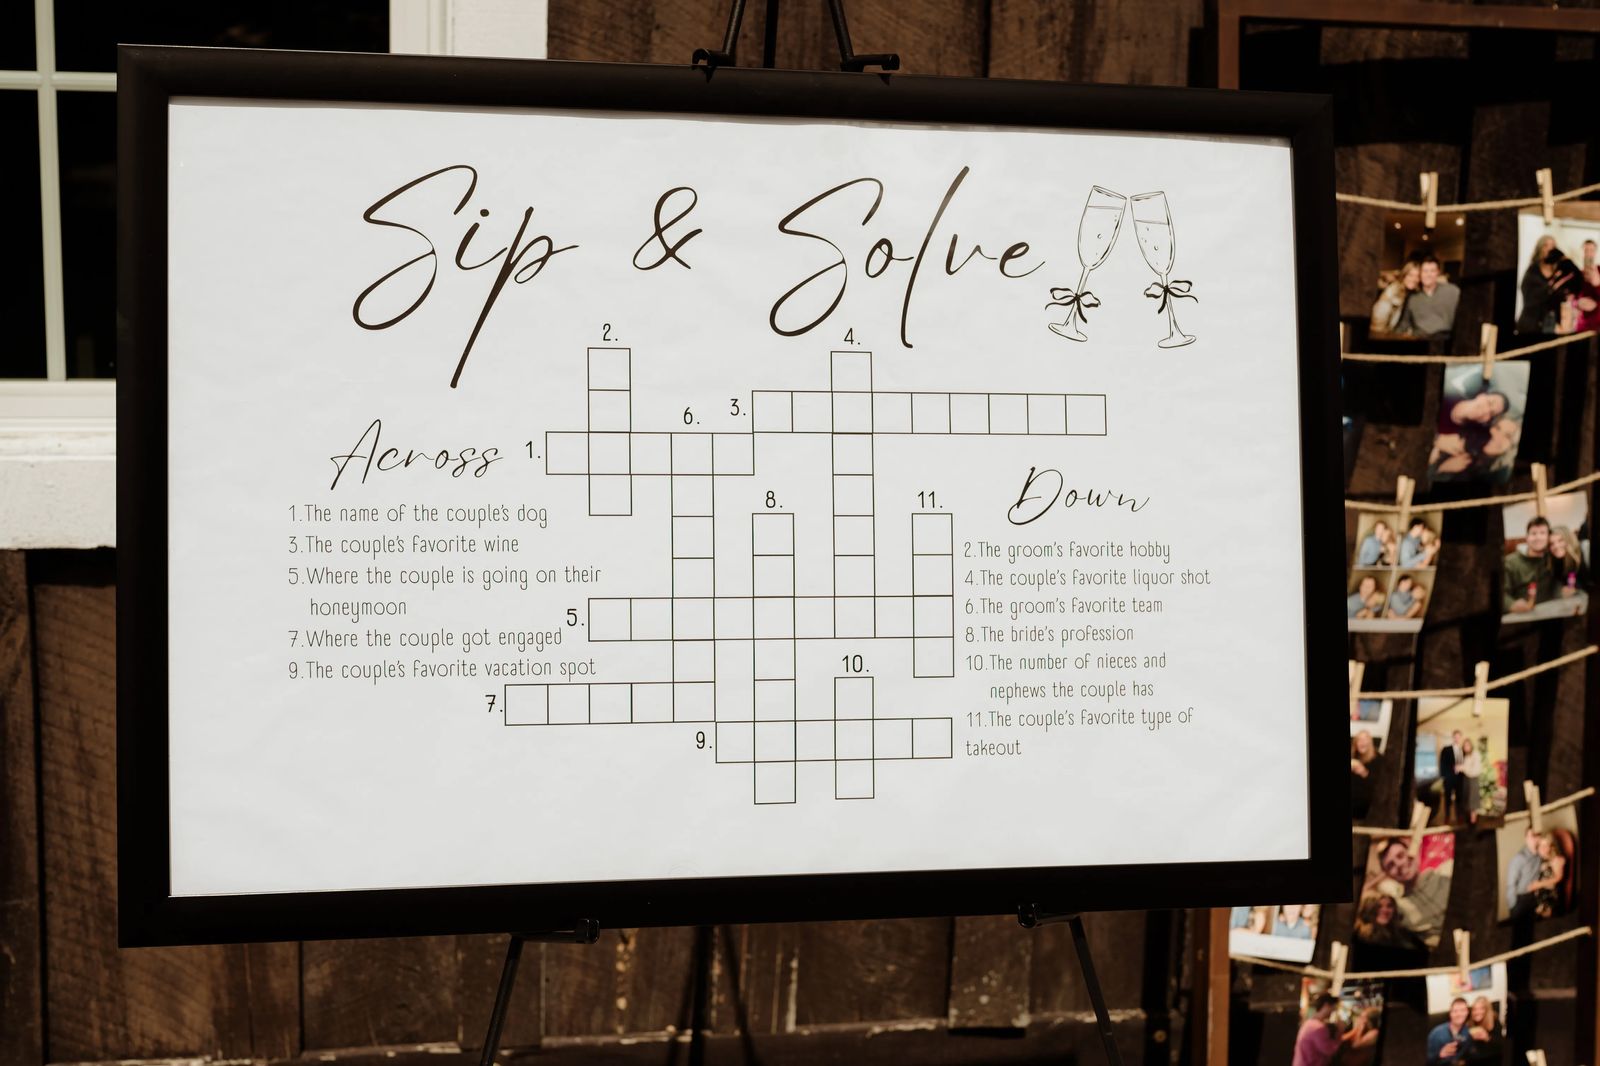 Sip & Solve
2.
4.
6.
3.
Across
1.
1.The name of the couple's dog
3.The couple's favorite wine
5.Where the couple is going on their
honeymoon
7.Where the couple got engaged
9.The couple's favorite vacation spot
8.
11.
5.
10.
7.
9.
Down
2.The groom's favorite hobby
4.The couple's favorite liquor shot
6.The groom's favorite team
8.The bride's profession
10.The number of nieces and
nephews the couple has
11.The couple's favorite type of
takeout